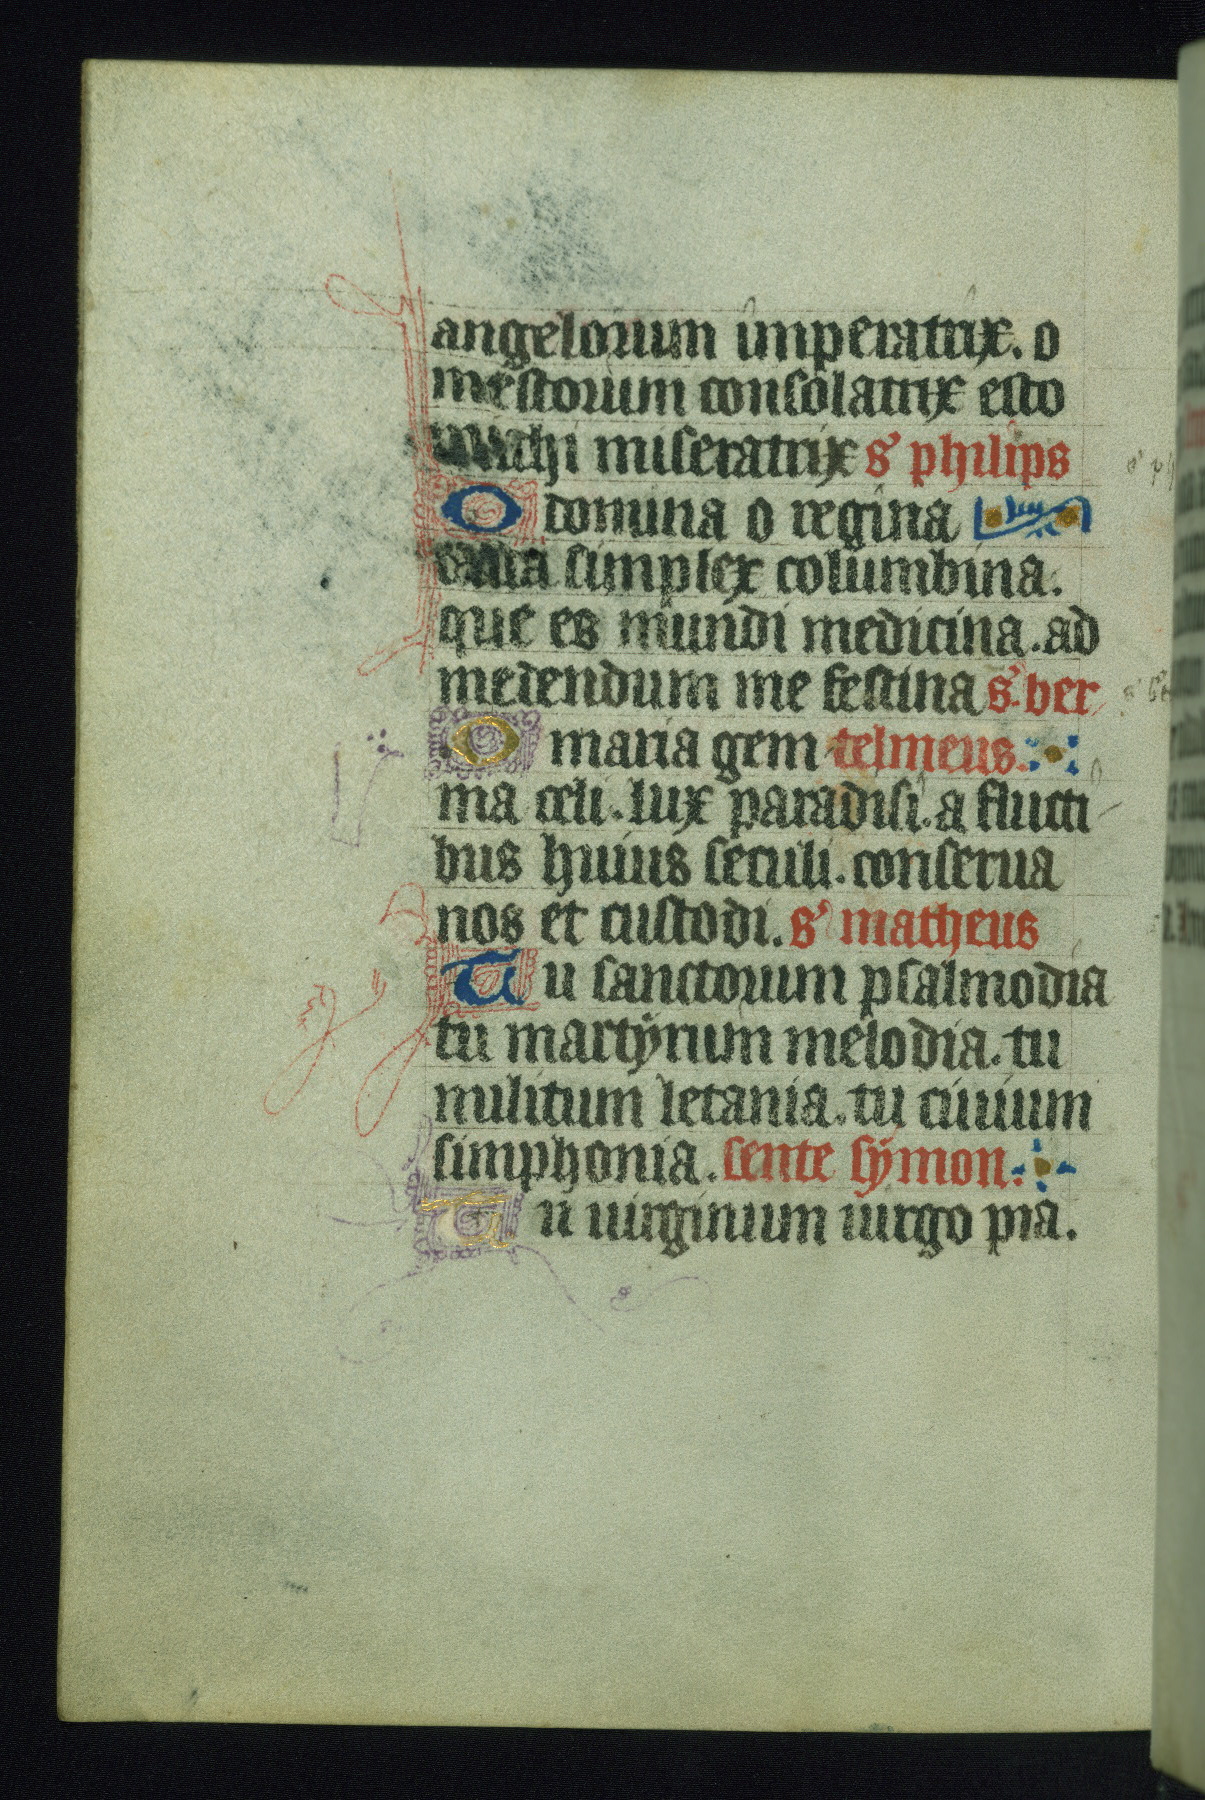 angelorum imperatrix. o
mestorum consolatrix esto
michi miseratrix s' philips
O domina o regina
simplex columbina.
que es mundi medicina. ad
medendum me festina s'. ber
O maria gem telmeus.
ma celi. lux paradisi. a flucti
bus huius seculi. conserua
nos et custodi. s' matheus
Tu sanctorum psalmodia
tu martyrum melodia. tu
militum letania. tu ciuium
simphonia. sente symon.
Tu uirginum uirgo pia.